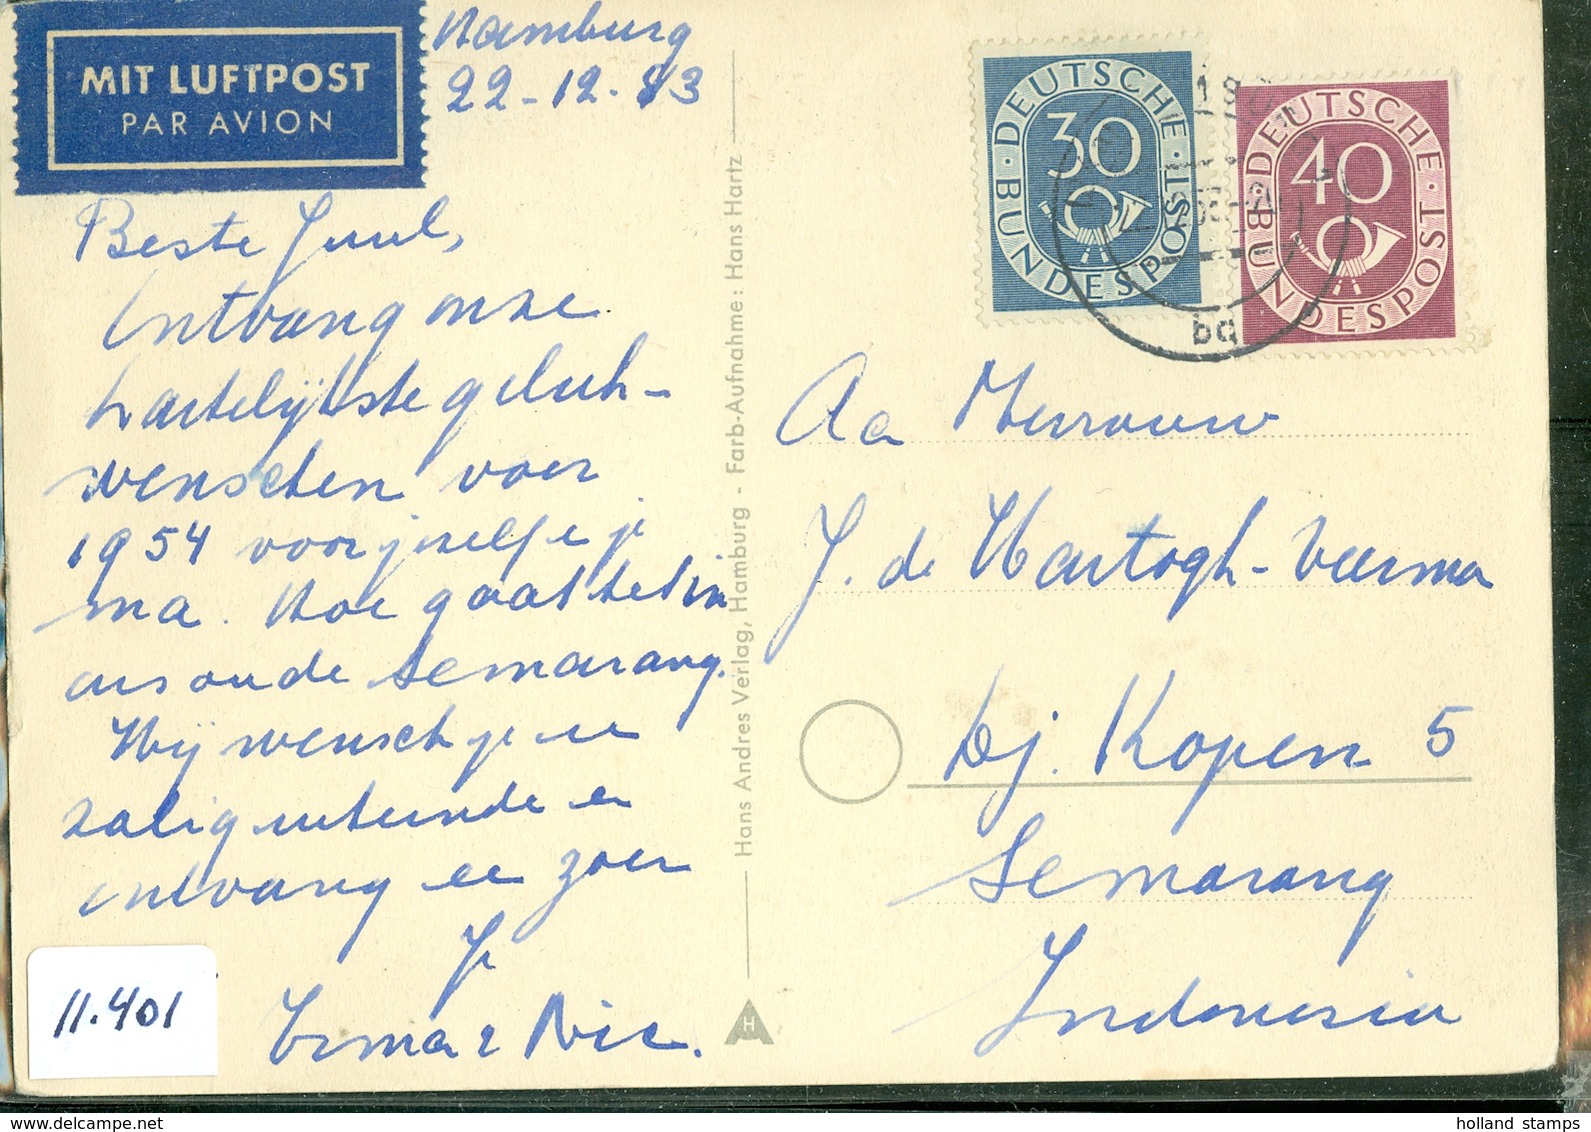 MIT LUFTPOST
PAR AVION
Hamburg
22-12-53
Beste Juul,
Ontvang onze
hartelijkste geluk-
wenschen voor
1954 voor jezelf e je
ma. Hoe gaat het in
ons oude Semarang.
Wij wensch je een
zalig uiteinde en
ontvang een zoen
Je
Irma & Nic.
11.401
Hans Andres Verlag, Hamburg - Farb-Aufnahme: Hans Hartz
H
DEUTSCHE BUNDESPOST
30
DEUTSCHE BUNDESPOST
40
bq
Aa Mevrouw
J. de Hartogh-Veerma
Dj. Kopen 5
Semarang
Indonesia
holland stamps
www.delcampe.net